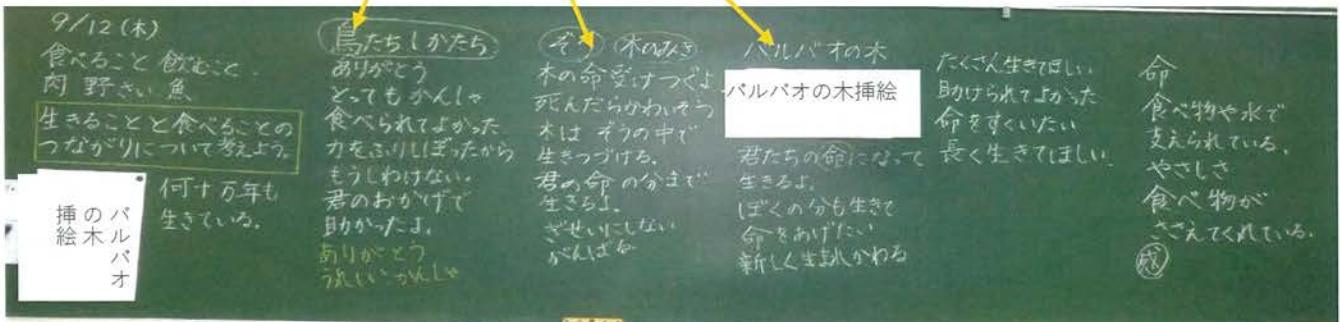 9/12(木)
食べること 飲むこと.
肉 野さい 魚
生きることと食べることの
つながりについて考えよう。
バルバオ
の木
挿絵
何十万年も
生きている。
鳥たち しかたち
ありがとう
とってもかんしゃ
食べられてよかった
力をふりしぼったから
もうしわけない。
君のおかげで
助かったよ。
ありがとう
うれしい かんしゃ
ぞう 木のみき
木の命受けつぐよ
死んだらかわいそう
木は ぞうの中で
生きつづける。
君の命の分まで
生きるよ。
ぎせいにしない
がんばる
バルバオの木
バルバオの木挿絵
君たちの命になって
生きるよ。
ぼくの分も生きて
命をあげたい
新しく生まれかわる
たくさん生きてほしい
助けられてよかった
命をすくいたい
長く生きてほしい.
命
食べ物や水で
支えられている.
やさしさ
食べ物が
ささえてくれている.
感